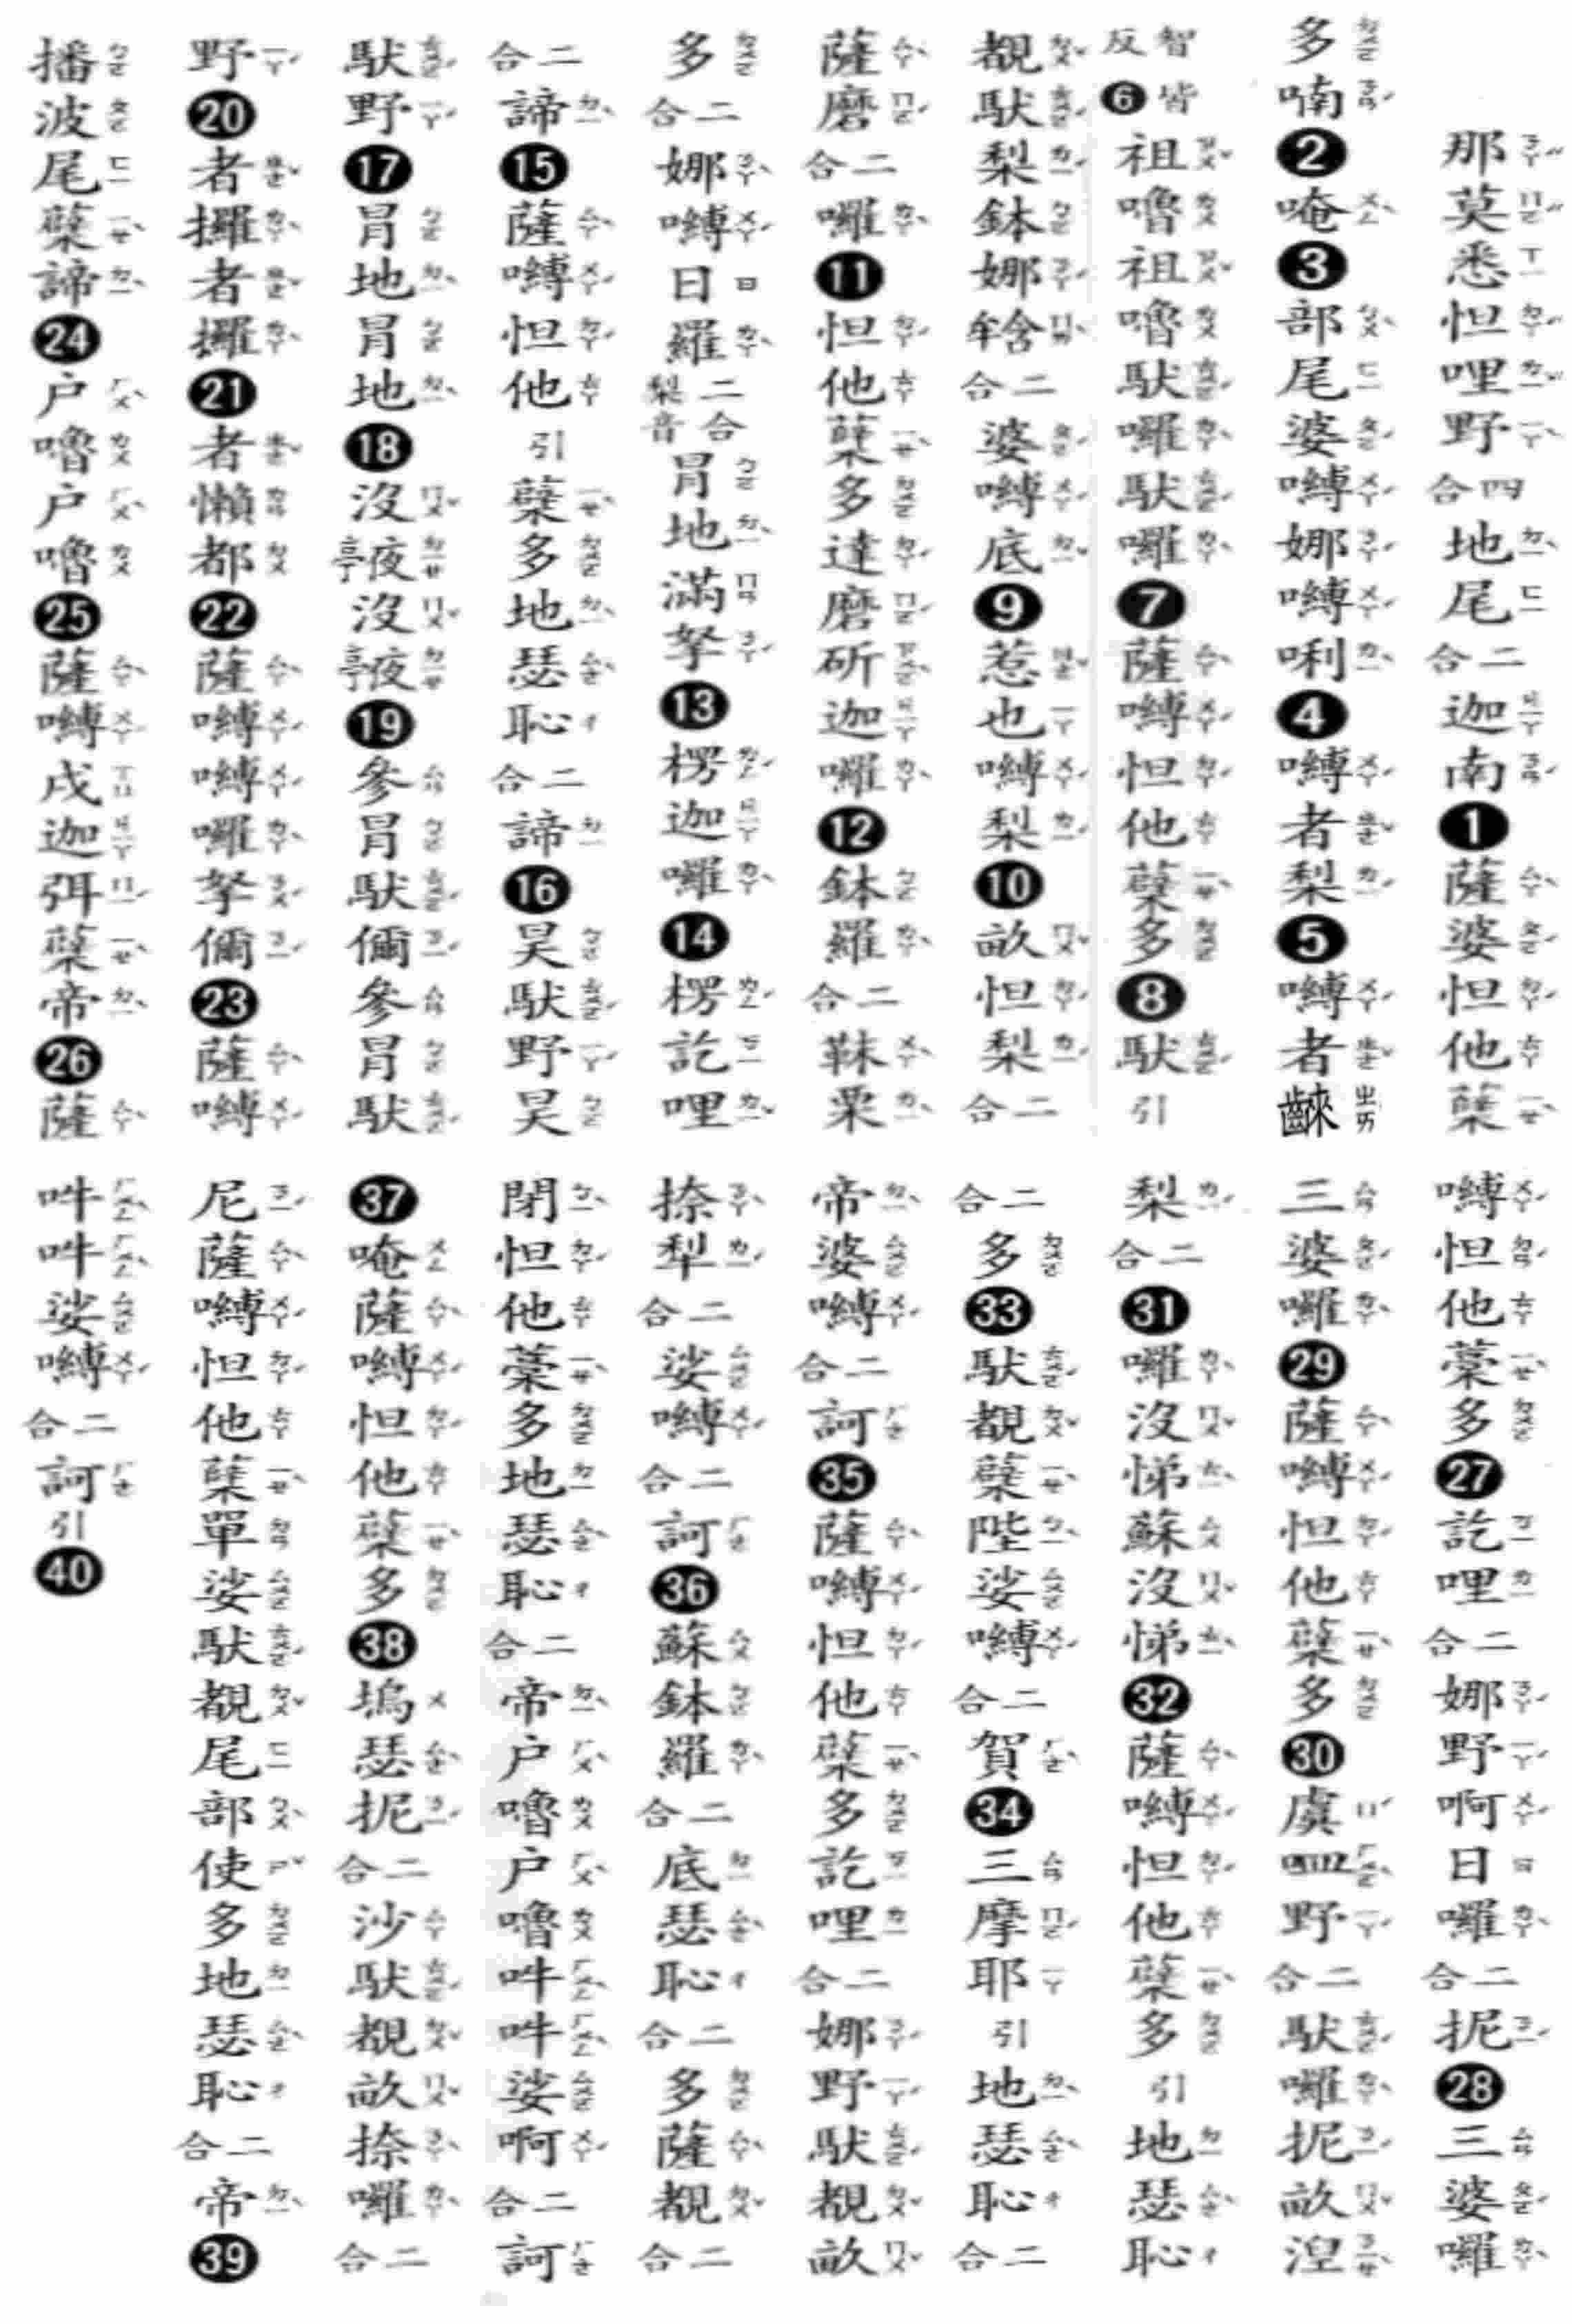 那莫悉怛哩野四合地尾二合迦南❶薩婆怛他蘖
多喃❷唵❸部尾婆嚩娜嚩唎❹嚩者梨❺嚩者䶚
智皆反❻祖嚕祖嚕馱囉馱囉❼薩嚩怛他蘖多❽馱引
覩馱梨鉢娜𤚥二合婆嚩底❾惹也嚩梨❿畝怛梨二合
薩磨二合囉⓫怛他蘖多達磨斫迦囉⓬鉢羅二合靺栗
多二合娜嚩日羅二合梨音冐地滿拏⓭楞迦囉⓮楞訖哩
二合諦⓯薩嚩怛他引蘖多地瑟恥二合諦⓰昊馱野昊
馱野⓱冐地冐地⓲沒𠆙沒𠆙⓳參冐馱儞參冐馱
野⓴者攞者攞㉑者懶都㉒薩嚩嚩囉拏儞㉓薩嚩
播波尾蘖諦㉔户嚕户嚕㉕薩嚩戍迦弭蘖帝㉖薩
嚩怛他藁多㉗訖哩二合娜野啊日囉二合抳㉘三婆囉
三婆囉㉙薩嚩怛他蘖多㉚虞呬野二合馱囉抳畝涅
梨二合㉛囉沒悌蘇沒悌㉜薩嚩怛他蘖多引地瑟恥
二合多㉝馱覩蘖陛娑嚩二合賀㉞三摩耶引地瑟恥二合
帝婆嚩二合訶㉟薩嚩怛他蘖多訖哩二合娜野馱覩畝
捺犁二合娑嚩二合訶㊱蘇鉢羅二合底瑟恥二合多薩覩二合
閉怛他藁多地瑟恥二合帝户嚕户嚕吽吽娑啊二合訶
㊲唵薩嚩怛他蘖多㊳塢瑟抳二合沙馱覩畝捺囉二合
尼薩嚩怛他蘖單娑馱覩尾部使多地瑟恥二合帝㊴
吽吽娑嚩二合訶引㊵